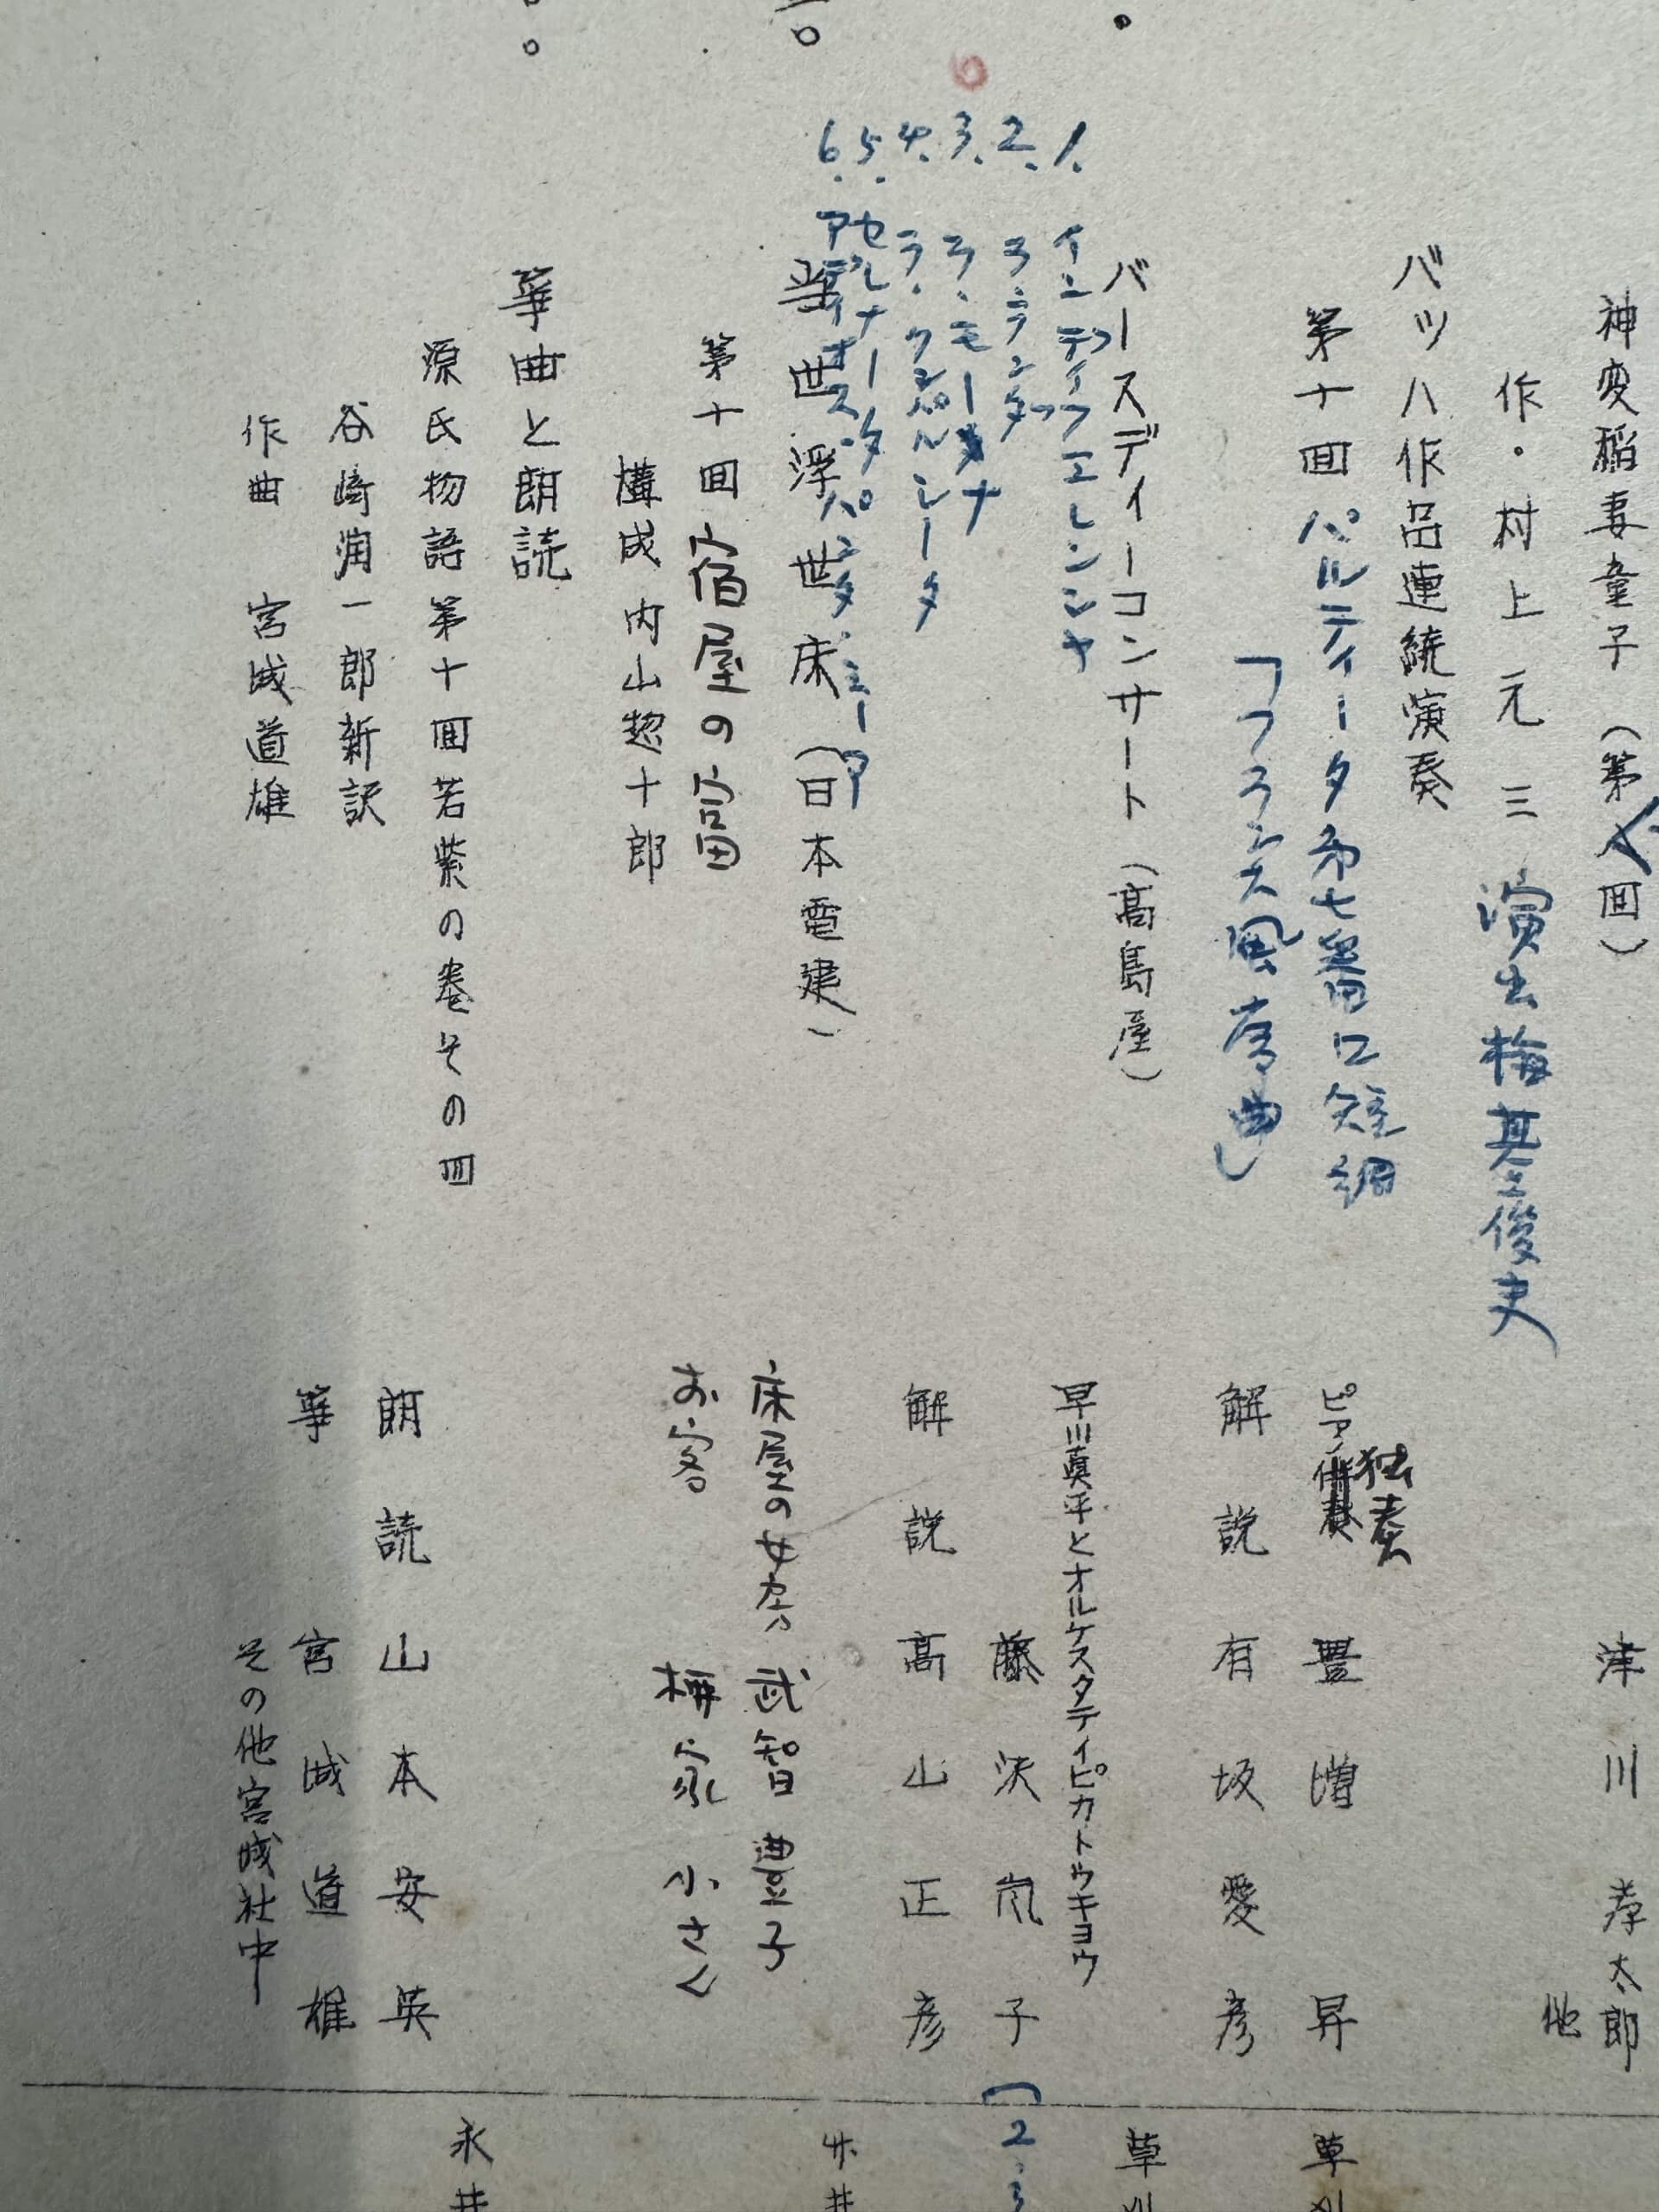 神変稲妻童子（第八回）
津川孝太郎
他
作・村上元三 演出 梅基俊夫
バツハ作品連続演奏
第十回 パルティータ第七番ロ短調
「フランス風序曲」
ピアノ独奏 豊増昇
解説 有坂愛彦
草刈
バースディーコンサート（高島屋）
1. インディフエレンシヤ
2. ラランダ
3. ラ・モーナ
4. ラ・クンパルシータ
5. セレナータ
6. アディオス・パンパ・ミーア
早川真平とオルケスタティピカトウキヨウ
藤沢嵐子（2.3
解説 高山正彦
草刈
浮世床（日本電建）
第十回 宿屋の富
構成 内山惣十郎
床屋の女房 武智豊子
お客 柳家小さん
井
箏曲と朗読
源氏物語第十回若紫の巻その四
谷崎潤一郎新訳
作曲 宮城道雄
朗読 山本安英
箏 宮城道雄
その他宮城社中
永井